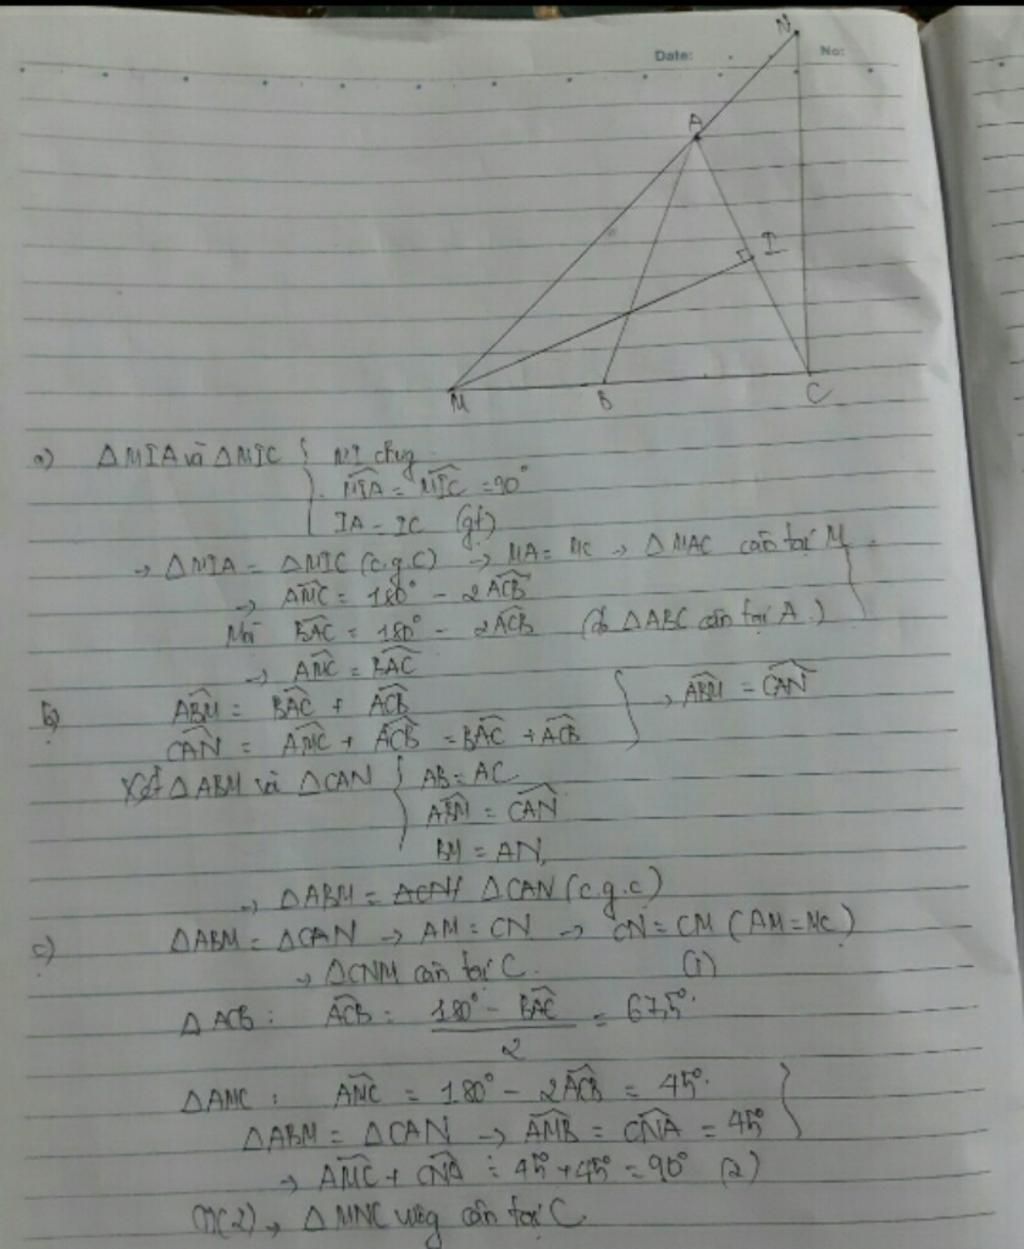 Date:
No:
N
A
I
M
B
C
a) ΔMIA và ΔMIC { MI chung
MIA = MIC = 90°
IA = IC (gt)
→ ΔMIA = ΔMIC (c.g.c) → MA = MC → ΔMAC cân tại M
→ AMC = 180° - 2ACB
Mà BAC = 180° - 2ACB (do ΔABC cân tại A.)
→ AMC = BAC
b) ABM = BAC + ACB
→ ABM = CAN
CAN = AMC + ACB = BAC + ACB
Xét ΔABM và ΔCAN { AB = AC
ABM = CAN
BM = AN
→ ΔABM = ΔCAN (c.g.c)
c) ΔABM = ΔCAN → AM = CN → CN = CM (AM = MC)
→ ΔCNM cân tại C. (1)
Δ ACB: ACB = 180° - BAC / 2 = 67,5°
ΔAMC: AMC = 180° - 2ACB = 45°
ΔABM = ΔCAN → AMB = CNA = 45°
→ AMC + CNA = 45° + 45° = 90° (2)
(1)(2) → ΔMNC vuông cân tại C